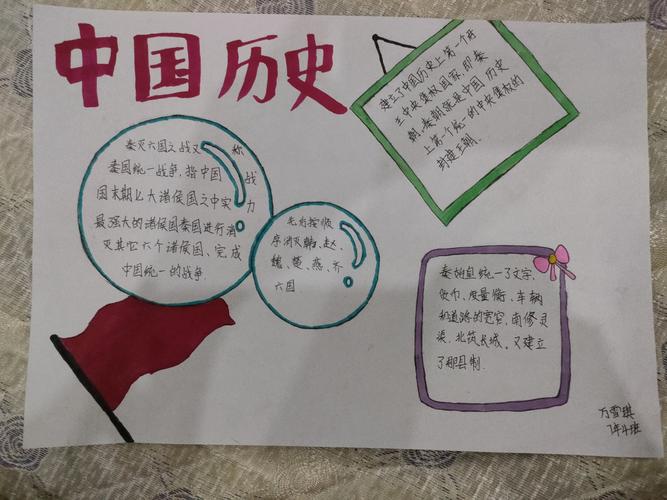 中国 历史
秦灭六国之战又称
秦国统一战争,指中国战
国末期七大诸侯国之中实力
最强大的诸侯国秦国进行消
灭其它六个诸侯国、完成
中国统一的战争.
先后按顺
序消灭韩、赵、
魏、楚、燕、齐
六国
建立了中国历史上第一个君
主中央集权国家,即秦
朝,秦朝就是中国历史
上第一个统一的中央集权的
封建王朝.
秦始皇统一了文字、
货币、度量衡、车辆
和道路的宽窄,南修灵
渠,北筑长城。又建立
了郡县制.
万雪琪
7年4班